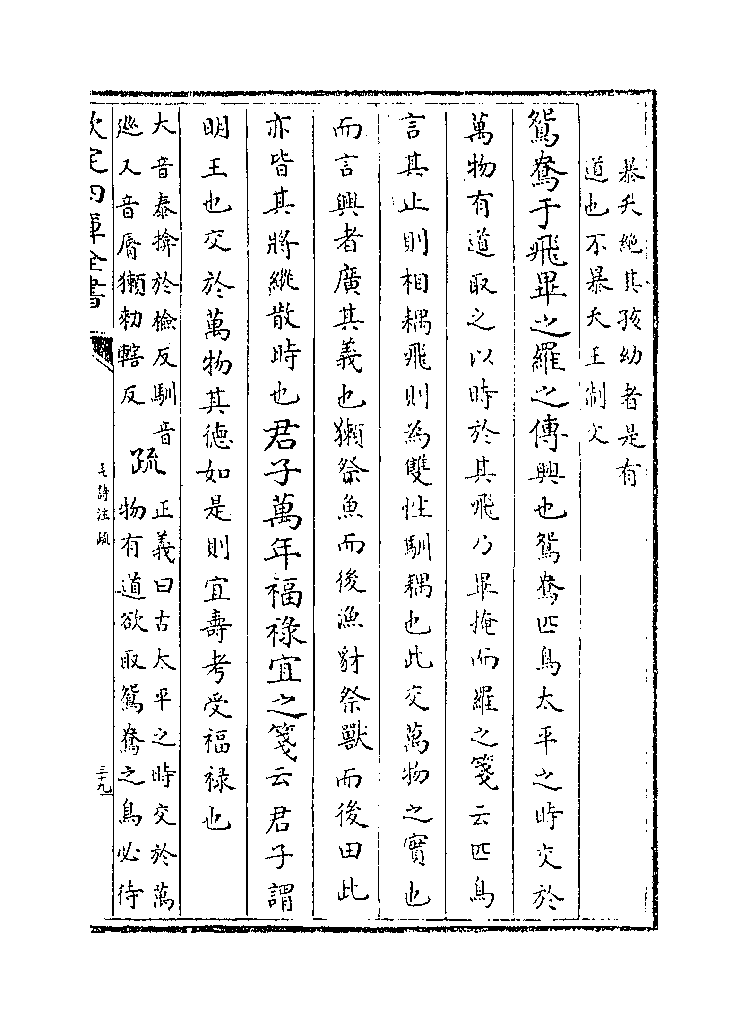 暴夭絶其孩幼者是有
道也不暴夭王制文
鴛鴦于飛畢之羅之傳興也鴛鴦匹鳥太平之時交於
萬物有道取之以時於其飛乃畢掩而羅之箋云匹鳥
言其止則相耦飛則為雙性馴耦也此交萬物之實也
而言興者廣其義也獺祭魚而後漁豺祭獸而後田此
亦皆其將縱散時也君子萬年福祿宜之箋云君子謂
明王也交於萬物其徳如是則宜壽考受福禄也
大音泰揜於檢反馴音
廵又音脣獺勑轄反
疏
正義曰古太平之時交於萬
物有道欲取鴛鴦之鳥必待
欽定四庫全書
毛詩注疏
三十九